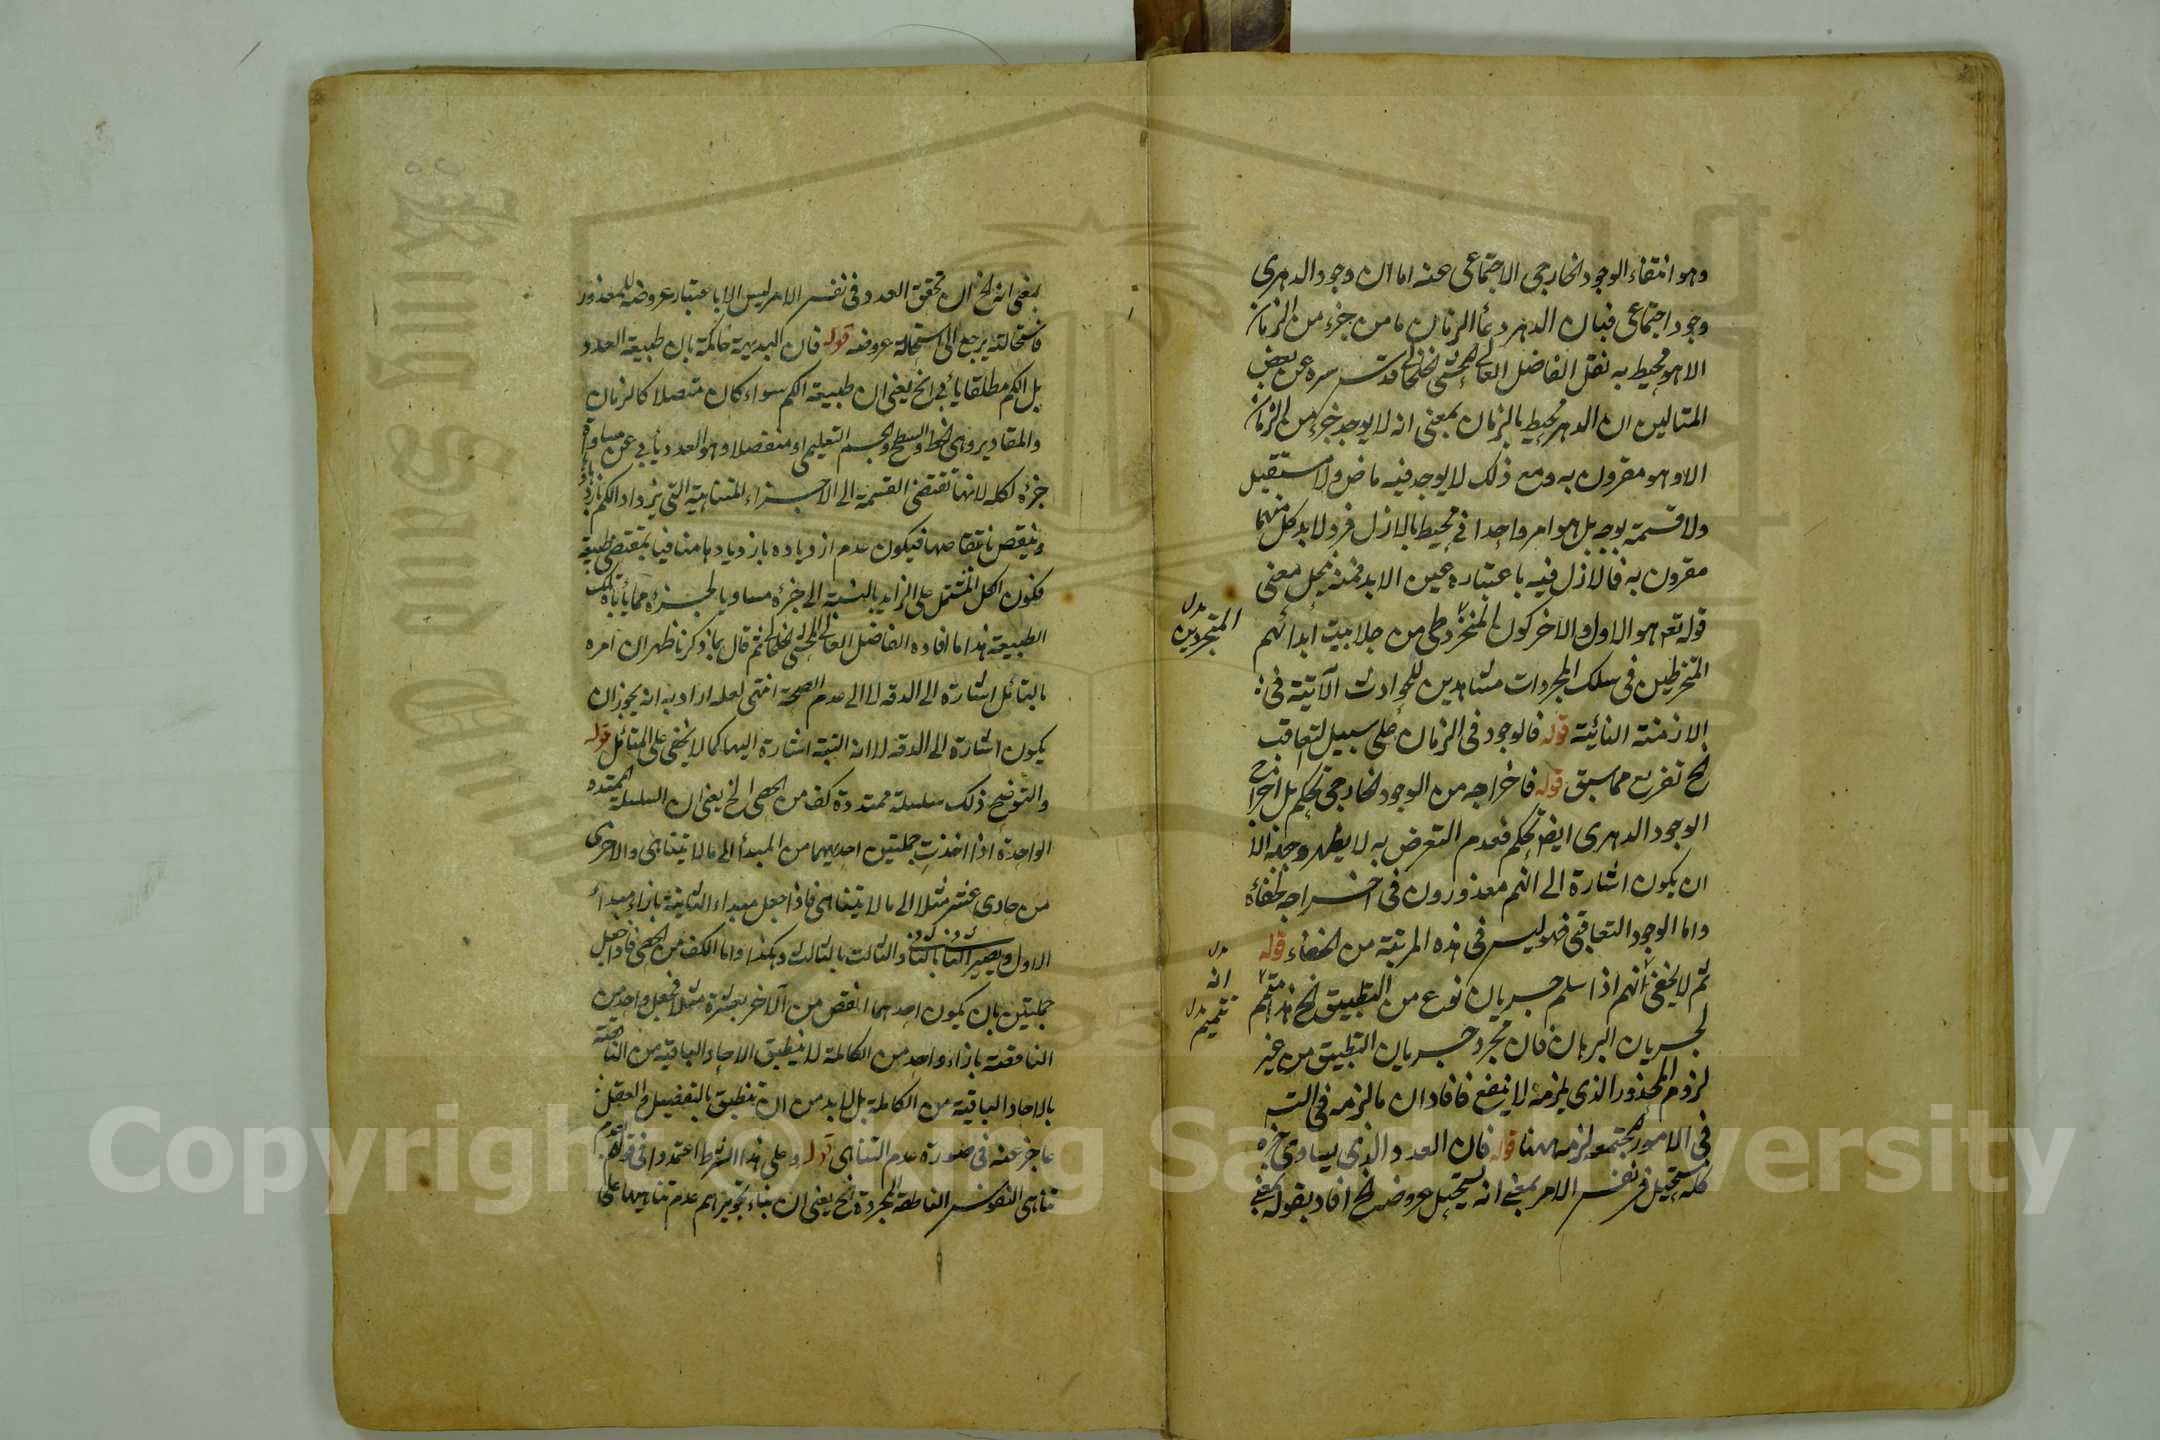 وهو انتفاء الوجود الخارجي الاجتماعي عنه اما ان وجود الدهري
وجود اجتماعي فبان الدهر وعاء الزمان ما من جزء من الزمان
الا هو محيط به نقل الفاضل العالي المحشي الخلخالي قدس سره عن بعض
المتالهين ان الدهر محيط بالزمان بمعنى انه لا يوجد جزء من الزمان
الا وهو مقرون به ومع ذلك لا يوجد فيه ماض ولا مستقبل
ولا قسمة بوجه بل هو امر واحداني محيط بالازل والابد كل منهما
مقرون به فالازل فيه باعتباره عين الابد فمنه يحل معنى
قوله تعه هو الاول والآخر كون المنخرطين من جلابيب ابدانهم
المنخرطين في سلك المجردات مشاهدين للحوادث الآتية في
الازمنة النائية قوله فالوجود في الزمان على سبيل التعاقب
الخ تفريع مما سبق قوله فاخراجه من الوجود الخارجي تحكم بل اخراج
الوجود الدهري ايضا تحكم فعدم التعرض به لا يظهر وجهه الا
ان يكون اشارة الى انهم معذورون في اخراجه لخفائه
واما الوجود التعاقبي فهو ليس في هذه المرتبة من الخفاء قوله
ثم لا يخفى انهم اذا سلم جريان نوع من التطبيق الخ هذا متمم
لجريان البرهان فان مجرد جريان التطبيق من غير
لزوم المحذور الذي يلزمه لا ينفع فافاد ان ما لزمه في
في الامور المجتمعة لزمه ههنا قوله فان العدد الذي يساوي جزءه
كله يستحيل في نفس الامر بمعنى انه يستحيل عروضه الخ افاد بقوله بمعنى
المتجردين
بدل
بدل
انه
تتميم
بدل
بمعنى انه الخ ان تحقق العدد في نفس الامر ليس الا باعتبار عروضه للمعدود
فاستحالته يرجع الى استحالة عروضه قوله فان البديهة حاكمة بان طبيعة العدد
بل الكم مطلقا يأبى الخ يعني ان طبيعة الكم سواء كان متصلا كالزمان
والمقادير وهي الخط والسطح والجسم التعليمي او منفصلا وهو العدد يأبى عن مساواة
جزئه لكله لانها تقتضي القسمة الى الاجزاء المتناهية التي يزداد الكم بازديادها
وينقص بانتقاصها فيكون عدم ازدياده بازديادها منافيا لمقتضى طبيعة
فكون الكل المشتمل على الزايد بالنسبة الى جزئه مساويا لجزئه مما يأباه تلك
الطبيعة هذا ما افاده الفاضل العالي المحشي الخلخالي ثم قال بما ذكرنا ظهر ان امره
بالتأمل اشارة الى الدقة لا الى عدم الصحة انتهى لعله اراد به انه يجوز ان
يكون اشارة الى الدقة لا انه البتة اشارة اليها كما لا يخفى على المتأمل قوله
والتوضيح ذلك سلسلة ممتدة كف من الحصى الخ يعني ان السلسلة الممتدة
الواحدة اذا اخذت جملتين احديهما من المبدأ الى ما لا يتناهى والاخرى
من حادي عشر مثلا الى ما لا يتناهى فاذا جعل مبداء الثانية بازاء مبدأ
الاول ويصير الثاني بالثاني والثالث بالثالث وهكذا واما الكف من الحصى فاذا جعل
جملتين بان يكون احدهما انقص من الآخر بعشرة مثلا فجعل واحد من
الناقصة بازاء واحد من الكاملة لا ينطبق الاحاد الباقية من الناقصة
بالاحاد الباقية من الكاملة بل لا بد من ان تنطبق بالتفصيل والعقل
عاجز عنه في صورة عدم التناهي قوله وعلى هذا الشرط اعتمدوا في قولهم بعدم
تناهي النفوس الناطقة المجردة الخ يعني ان بناء تجويزهم عدم تناهيها على
Copyright © King Saud University